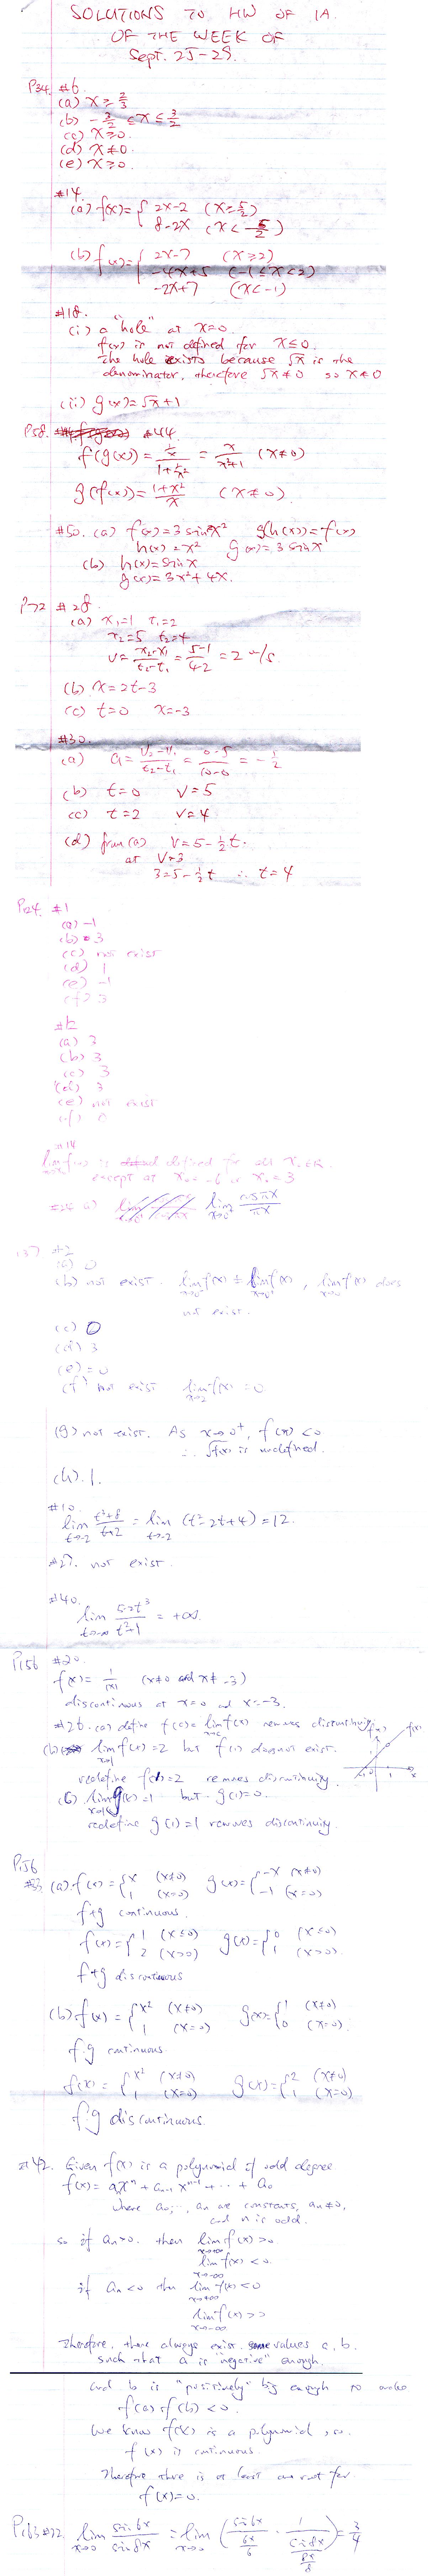 SOLUTIONS TO HW OF 1A.
OF THE WEEK OF
Sept. 25-29.
P34. #6
(a) x ≥ 2/3
(b) -3/2 ≤ x ≤ 3/2
(c) x ≥ 0.
(d) x ≠ 0.
(e) x ≥ 0.
#14.
(a) f(x) = { 2x-2 (x ≥ 5/2)
8-2x (x < 5/2)
(b) f(x) = { 2x-7 (x ≥ 2)
-4x+5 (-1 ≤ x < 2)
-2x+7 (x < -1)
#18.
(i) a "hole" at x=0.
f(x) is not defined for x ≤ 0.
The hole exists because √x is the
denominator, therefore √x ≠ 0 so x ≠ 0
(ii) g(x) = √x + 1
P58. #44
f(g(x)) = (1/x)/(1+1/x²) = x/(x²+1) (x ≠ 0)
g(f(x)) = (1+x²)/x (x ≠ 0).
#50. (a) f(x) = 3 sin x² g(h(x)) = f(x)
h(x) = x² g(x) = 3 sin x
(b) h(x) = sin x
g(x) = 3x² + 4x.
P72 #28.
(a) x₁=1 t₁=2
x₂=5 t₂=4
v = (x₂-x₁)/(t₂-t₁) = (5-1)/(4-2) = 2 m/s
(b) x = 2t-3
(c) t=0 x=-3
#30.
(a) a = (v₂-v₁)/(t₂-t₁) = (0-5)/(10-0) = -1/2
(b) t=0 v=5
(c) t=2 v=4
(d) from (a) v = 5 - 1/2 t.
at v=3
3 = 5 - 1/2 t ∴ t = 4
P124. #1
(a) -1
(b) 3
(c) not exist
(d) 1
(e) -1
(f) 3
(a) 3
(b) 3
(c) 3
(d) 3
(e) not exist
(f) 0
#14
lim f(x) is defined for all x₀
except at x₀ = -6 or x₀ = 3
a) lim x→0 cos πx / πx
#2
(a) 0
(b) not exist. lim x→0⁻ f(x) ≠ lim x→0⁺ f(x), lim x→0 f(x) does
not exist.
(c) 0
(d) 3
(e) = 0
(f) not exist lim x→2 f(x) = 0
(g) not exist. As x→0⁺, f(x) < 0
∴ √f(x) is undefined.
(h). 1.
#10.
lim t→-2 (t³+8)/(t+2) = lim t→-2 (t²-2t+4) = 12.
#27. not exist.
#40.
lim t→-∞ (5-2t³)/(t²+1) = +∞.
P156 #20.
f(x) = (x≠0 and x≠-3)
discontinuous at x=0 and x=-3.
#26. (a) define f(c) = lim x→c f(x) removes discontinuity.
(b) lim x→1 f(x) = 2 but f(1) does not exist.
redefine f(1) = 2 removes discontinuity.
(c) lim x→1 g(x) = 1 but g(1) = 0.
redefine g(1) = 1 removes discontinuity.
f(x)
-1 0 1 x
P156
#33 (a). f(x) = { x (x≠0) g(x) = { -x (x≠0)
1 (x=0) -1 (x=0)
f+g continuous.
f(x) = { 1 (x≤0) g(x) = { 0 (x≤0)
2 (x>0) 1 (x>0).
f+g discontinuous
(b). f(x) = { x² (x≠0) g(x) = { 1 (x≠0)
1 (x=0) 0 (x=0).
f·g continuous
f(x) = { x² (x≠0) g(x) = { 2 (x≠0)
1 (x=0) 1 (x=0)
f·g discontinuous.
#42. Given f(x) is a polynomial of odd degree
f(x) = aₙxⁿ + aₙ₋₁xⁿ⁻¹ + ·· + a₀
where a₀, ··, aₙ are constants, aₙ≠0,
and n is odd.
so if aₙ>0. then lim x→+∞ f(x) > 0.
lim x→-∞ f(x) < 0.
if aₙ<0 then lim x→+∞ f(x) < 0
lim x→-∞ f(x) > 0
Therefore, there always exist some values a, b.
such that a is "negative" enough.
and b is "positively" big enough to make
f(a)·f(b) < 0.
We know f(x) is a polynomial, so
f(x) is continuous.
Therefore there is at least one root for
f(x) = 0.
P163 #22. lim x→0 sin6x/sin8x = lim x→0 ( sin6x/(6x/6) · 1/(sin8x/(8x/8)) ) = 3/4